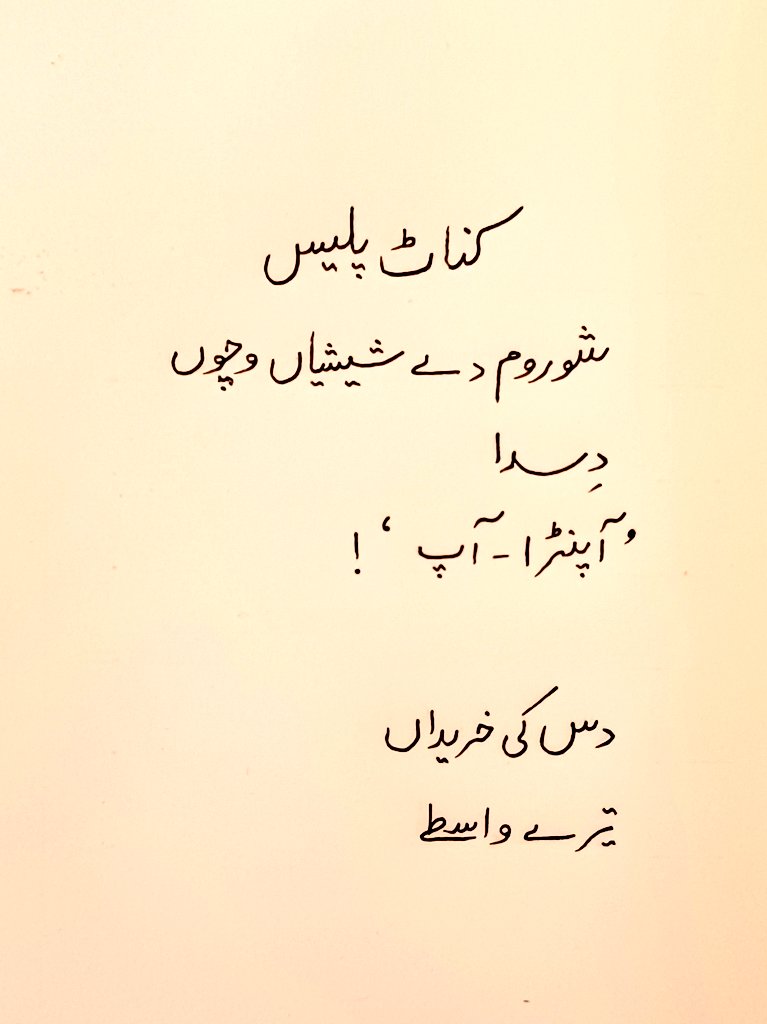 کناٹ پلیس
شوروم دے شیشیاں وچوں
دِسدا
’آپنڑا - آپ‘ !
دس کی خریداں
تیرے واسطے